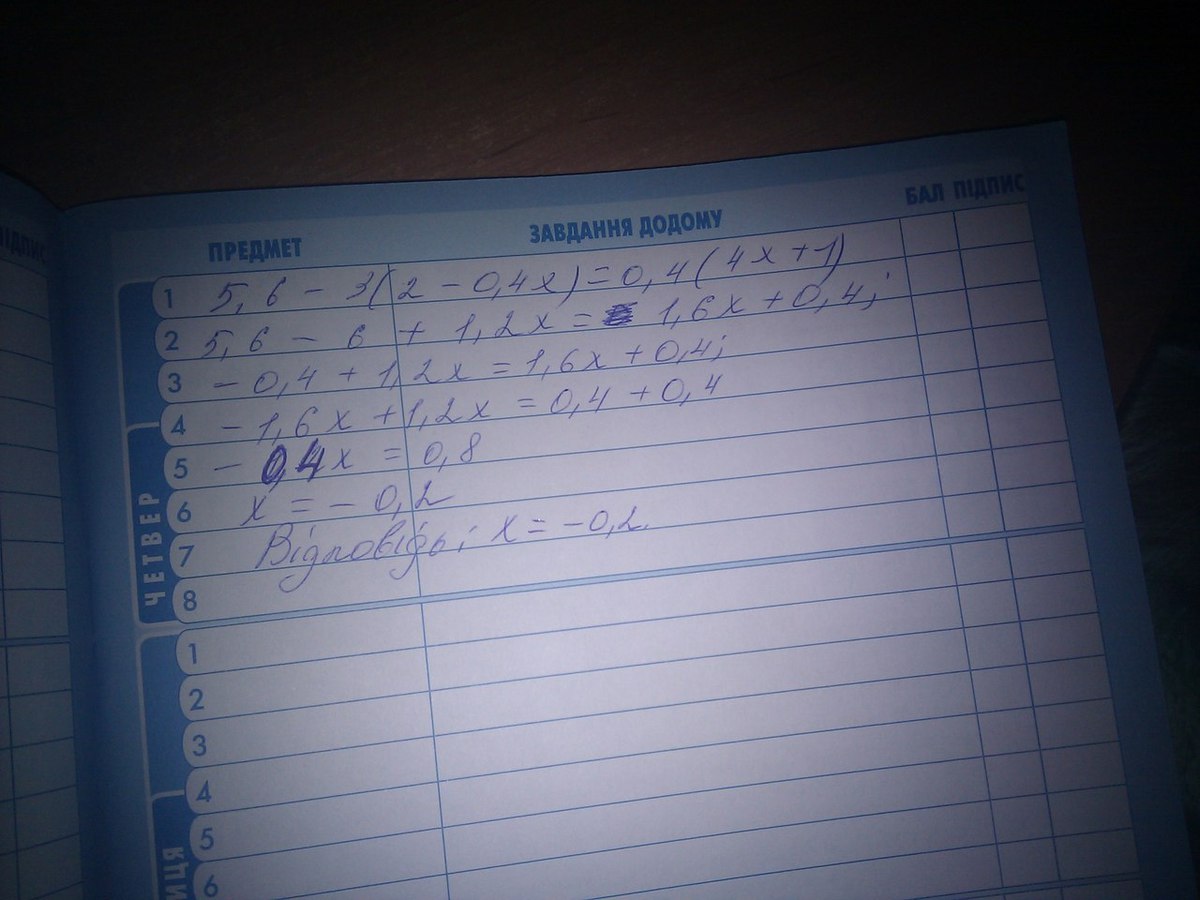 ПІДПИС
ПРЕДМЕТ ЗАВДАННЯ ДОДОМУ БАЛ ПІДПИС
1 5,6 - 3(2 - 0,4x) = 0,4(4x+1)
2 5,6 - 6 + 1,2x = 1,6x + 0,4;
3 - 0,4 + 1,2x = 1,6x + 0,4;
4 - 1,6x + 1,2x = 0,4 + 0,4
5 - 0,4x = 0,8
6 x = - 0,2
7 Відповідь; x = -0,2.
8
ЧЕТВЕР
1
2
3
4
5
6
ИЦЯ